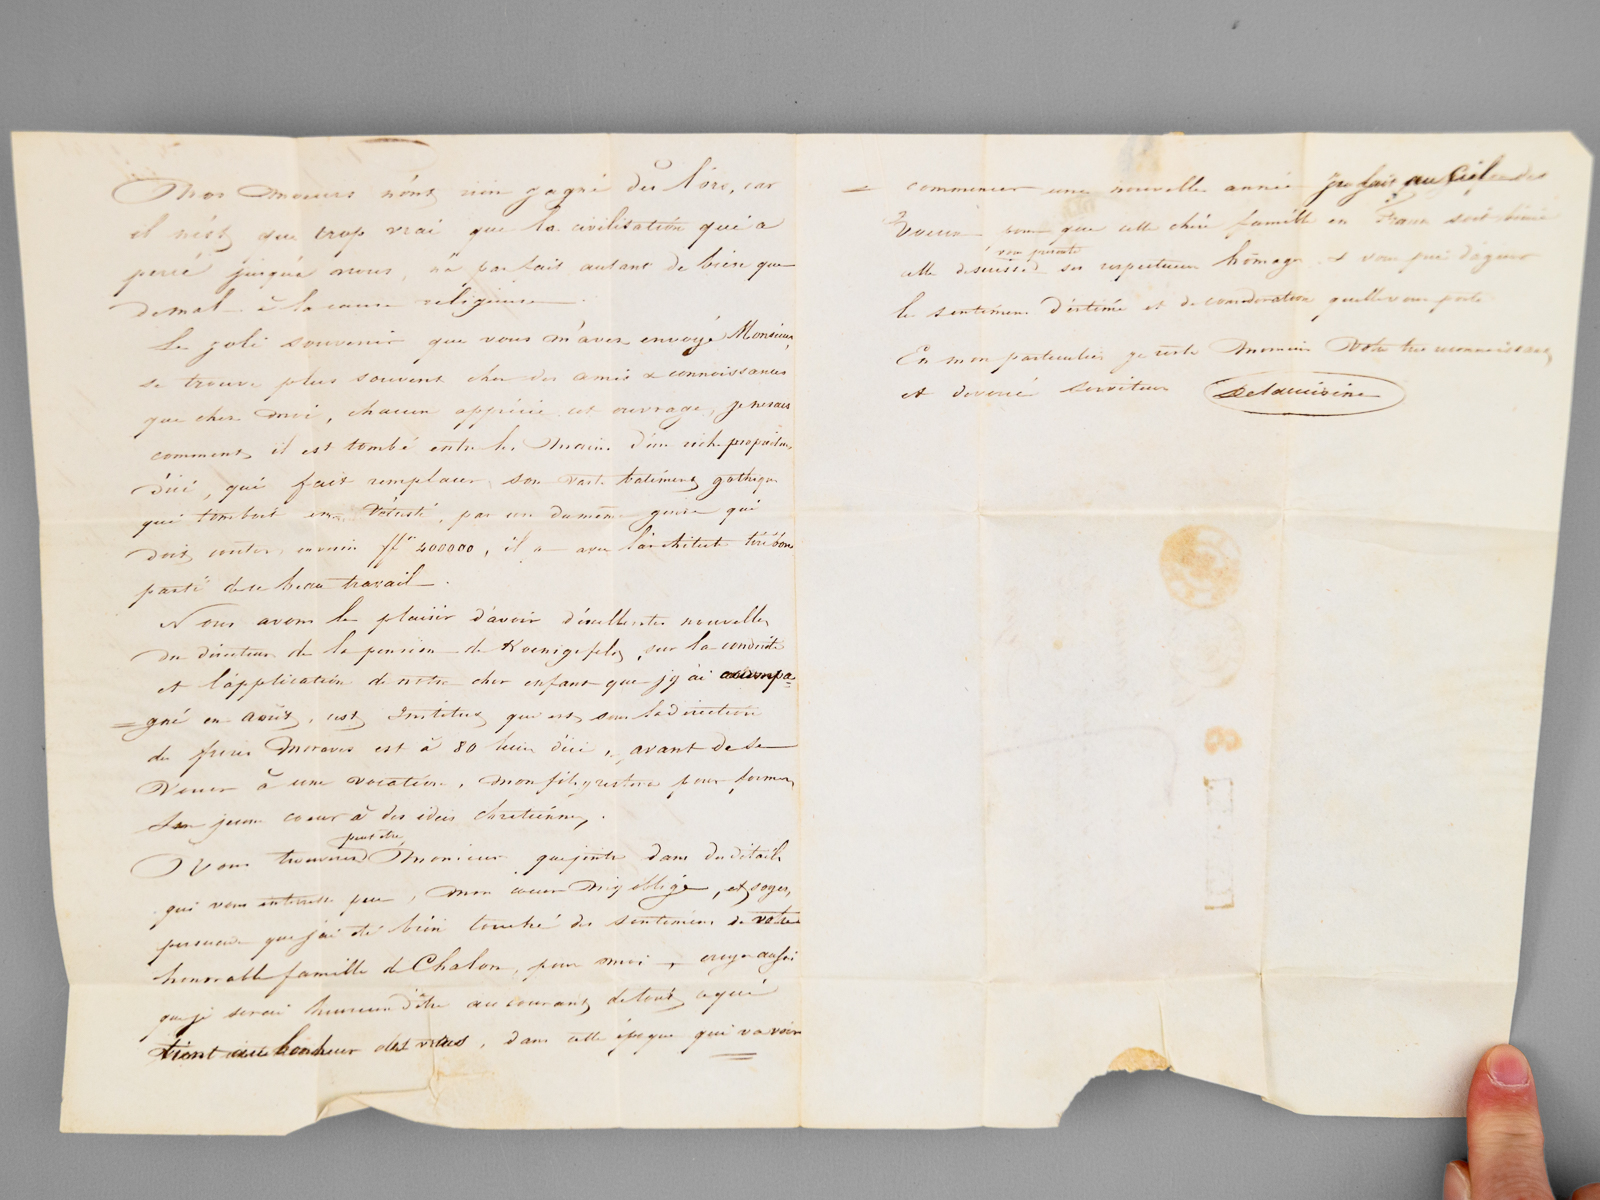 Nos moeurs n'ont rien gagné dès lors, car
il n'est que trop vrai que la civilisation qui a
percé jusqu'à nous, n'a pas fait autant de bien que
de mal à la cause réligieuse.
Le joli souvenir que vous m'avez envoyé Monsieur,
se trouve plus souvent chez des amis & connoissances
que chez moi, chacun apprécie cet ouvrage, je ne sais
comment il est tombé entre les mains d'un riche propriétre
d'ici, qui fait remplacer son vaste batiment gothique
qui tomboit en vétusté, par un du même genre qui
doit couter environ 400000, il a avec l'architecte tiré bon
parti de ce beau travail.
Nous avons le plaisir d'avoir d'éxcellentes nouvelles
du directeur de la pension de Koenigsfeld, sur la conduite
et l'application de notre cher enfant que j'y ai accompa=
=gné en août, cet Institut qui est sous la direction
des freres Moraves est à 80 lieues d'ici, avant de se
vouer à une vocation, mon fils y restera pour former
son jeune coeur à des idées chrétiennes.
peut être
Vous trouverez Monsieur que j'entre dans des détails
qui vous interesse peu, mon coeur m'y oblige, et soyez
persuadé que j'ai été bien touché des sentimens de votre
honorable famille de Chalon, pour moi, croyez aussi
que je serai heureux d'être au courant de tout ce qui
tient au bonheur des vôtres, dans cette époque qui va voir
= commencer une nouvelle année je fais au Ciel des
voeux pour que cette chère famille en France soit bénie
vous présente
elle ses respectueux hommages & vous prie d'agréer
les sentimens d'estime et de consideration qu'elle vous porte
En mon particulier je reste Monsieur Votre très reconnaissant
et devoué serviteur Delacuisine